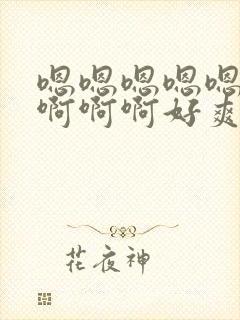 嗯嗯嗯嗯嗯
啊啊啊好爽
花夜神